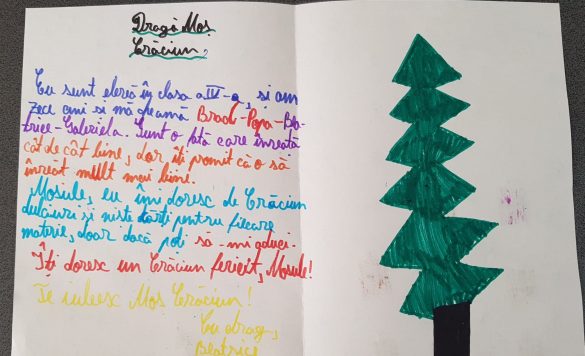 Dragă Moș
Crăciun,
Eu sunt elevă în clasa a IV-a, și am
zece ani si mă cheamă Brad-Popa-Bea-
trice-Gabriela. Sunt o fată care învață
cât de cât bine, dar îți promit că o să
învăt mult mai bine.
Moșule, eu îmi doresc de Crăciun
dulciuri și niste cărti pentru fiecare
materie, doar dacă poti să-mi aduci.
Îți doresc un Crăciun fericit, Mosule!
Te iubesc Moș Crăciun!
Cu drag,
Beatrice